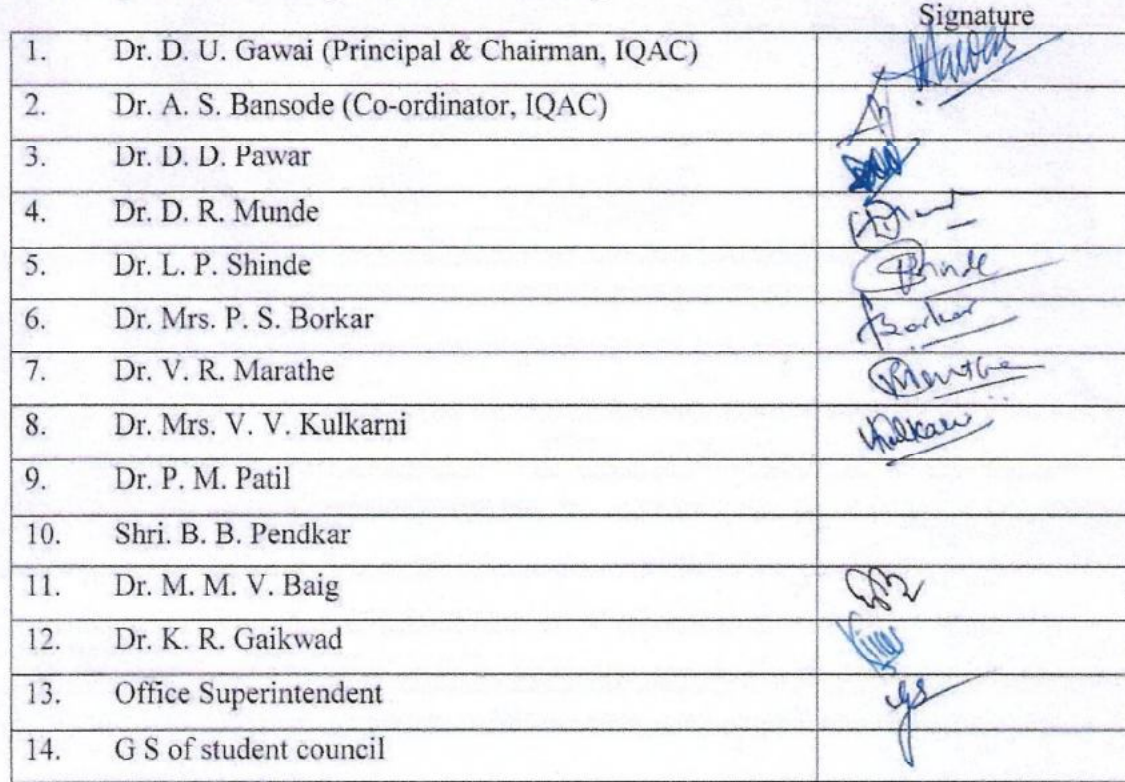 Signature
1. Dr. D. U. Gawai (Principal & Chairman, IQAC)
2. Dr. A. S. Bansode (Co-ordinator, IQAC)
3. Dr. D. D. Pawar
4. Dr. D. R. Munde
5. Dr. L. P. Shinde
6. Dr. Mrs. P. S. Borkar
7. Dr. V. R. Marathe
8. Dr. Mrs. V. V. Kulkarni
9. Dr. P. M. Patil
10. Shri. B. B. Pendkar
11. Dr. M. M. V. Baig
12. Dr. K. R. Gaikwad
13. Office Superintendent
14. G S of student council